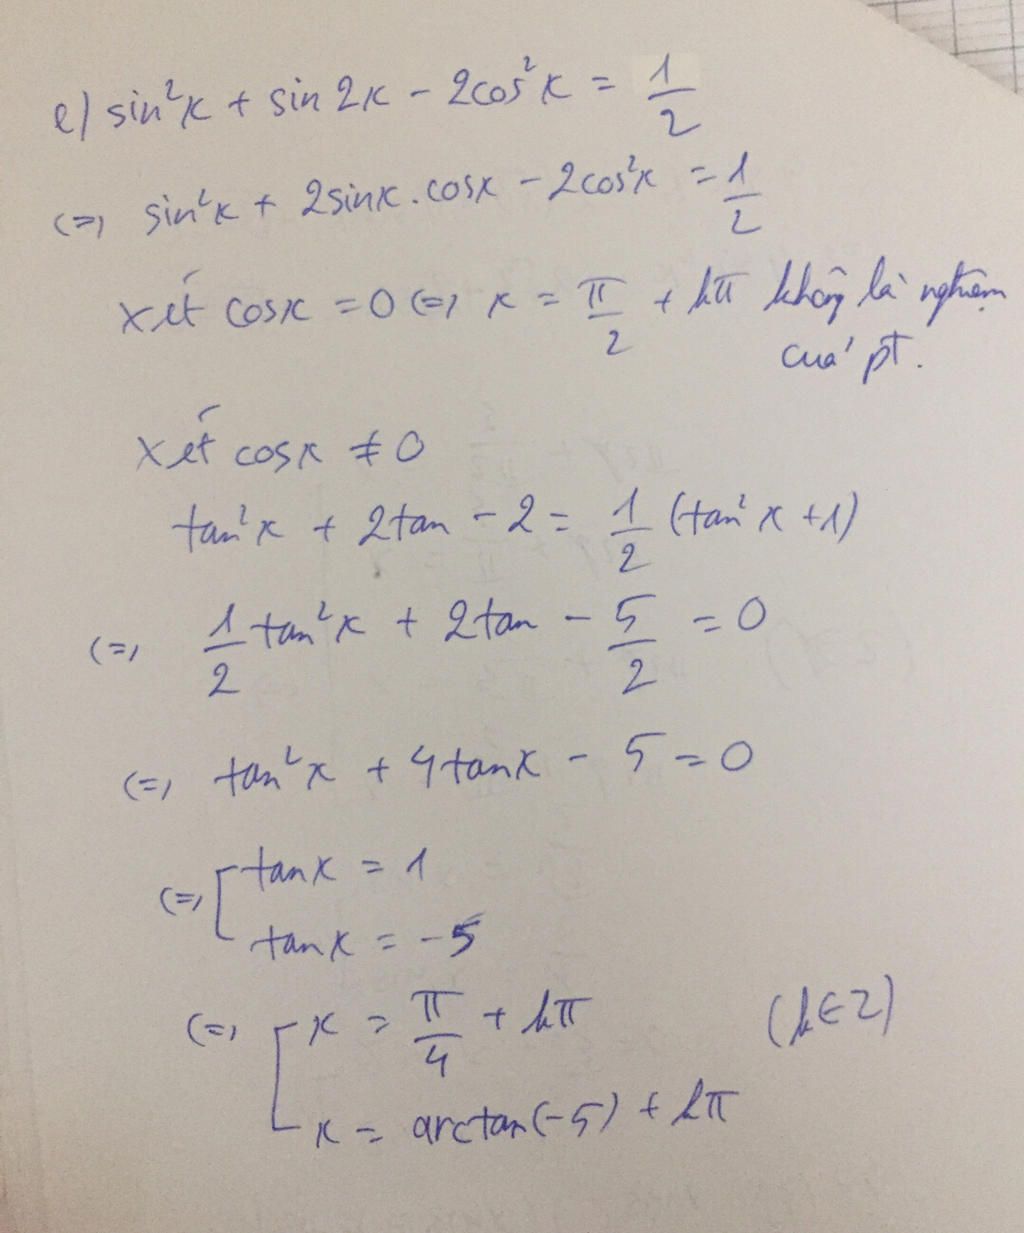 e) sin²x + sin 2x - 2cos²x = 1/2
(=) sin²x + 2sinx.cosx - 2cos²x = 1/2
xét cosx = 0 (=) x = π/2 + kπ không là nghiệm
của pt.
xét cosx ≠ 0
tan²x + 2tan - 2 = 1/2 (tan²x + 1)
(=) 1/2 tan²x + 2tan - 5/2 = 0
(=) tan²x + 4tanx - 5 = 0
(=) [ tanx = 1
tanx = -5
(=) [ x = π/4 + kπ (k∈Z)
x = arctan(-5) + kπ